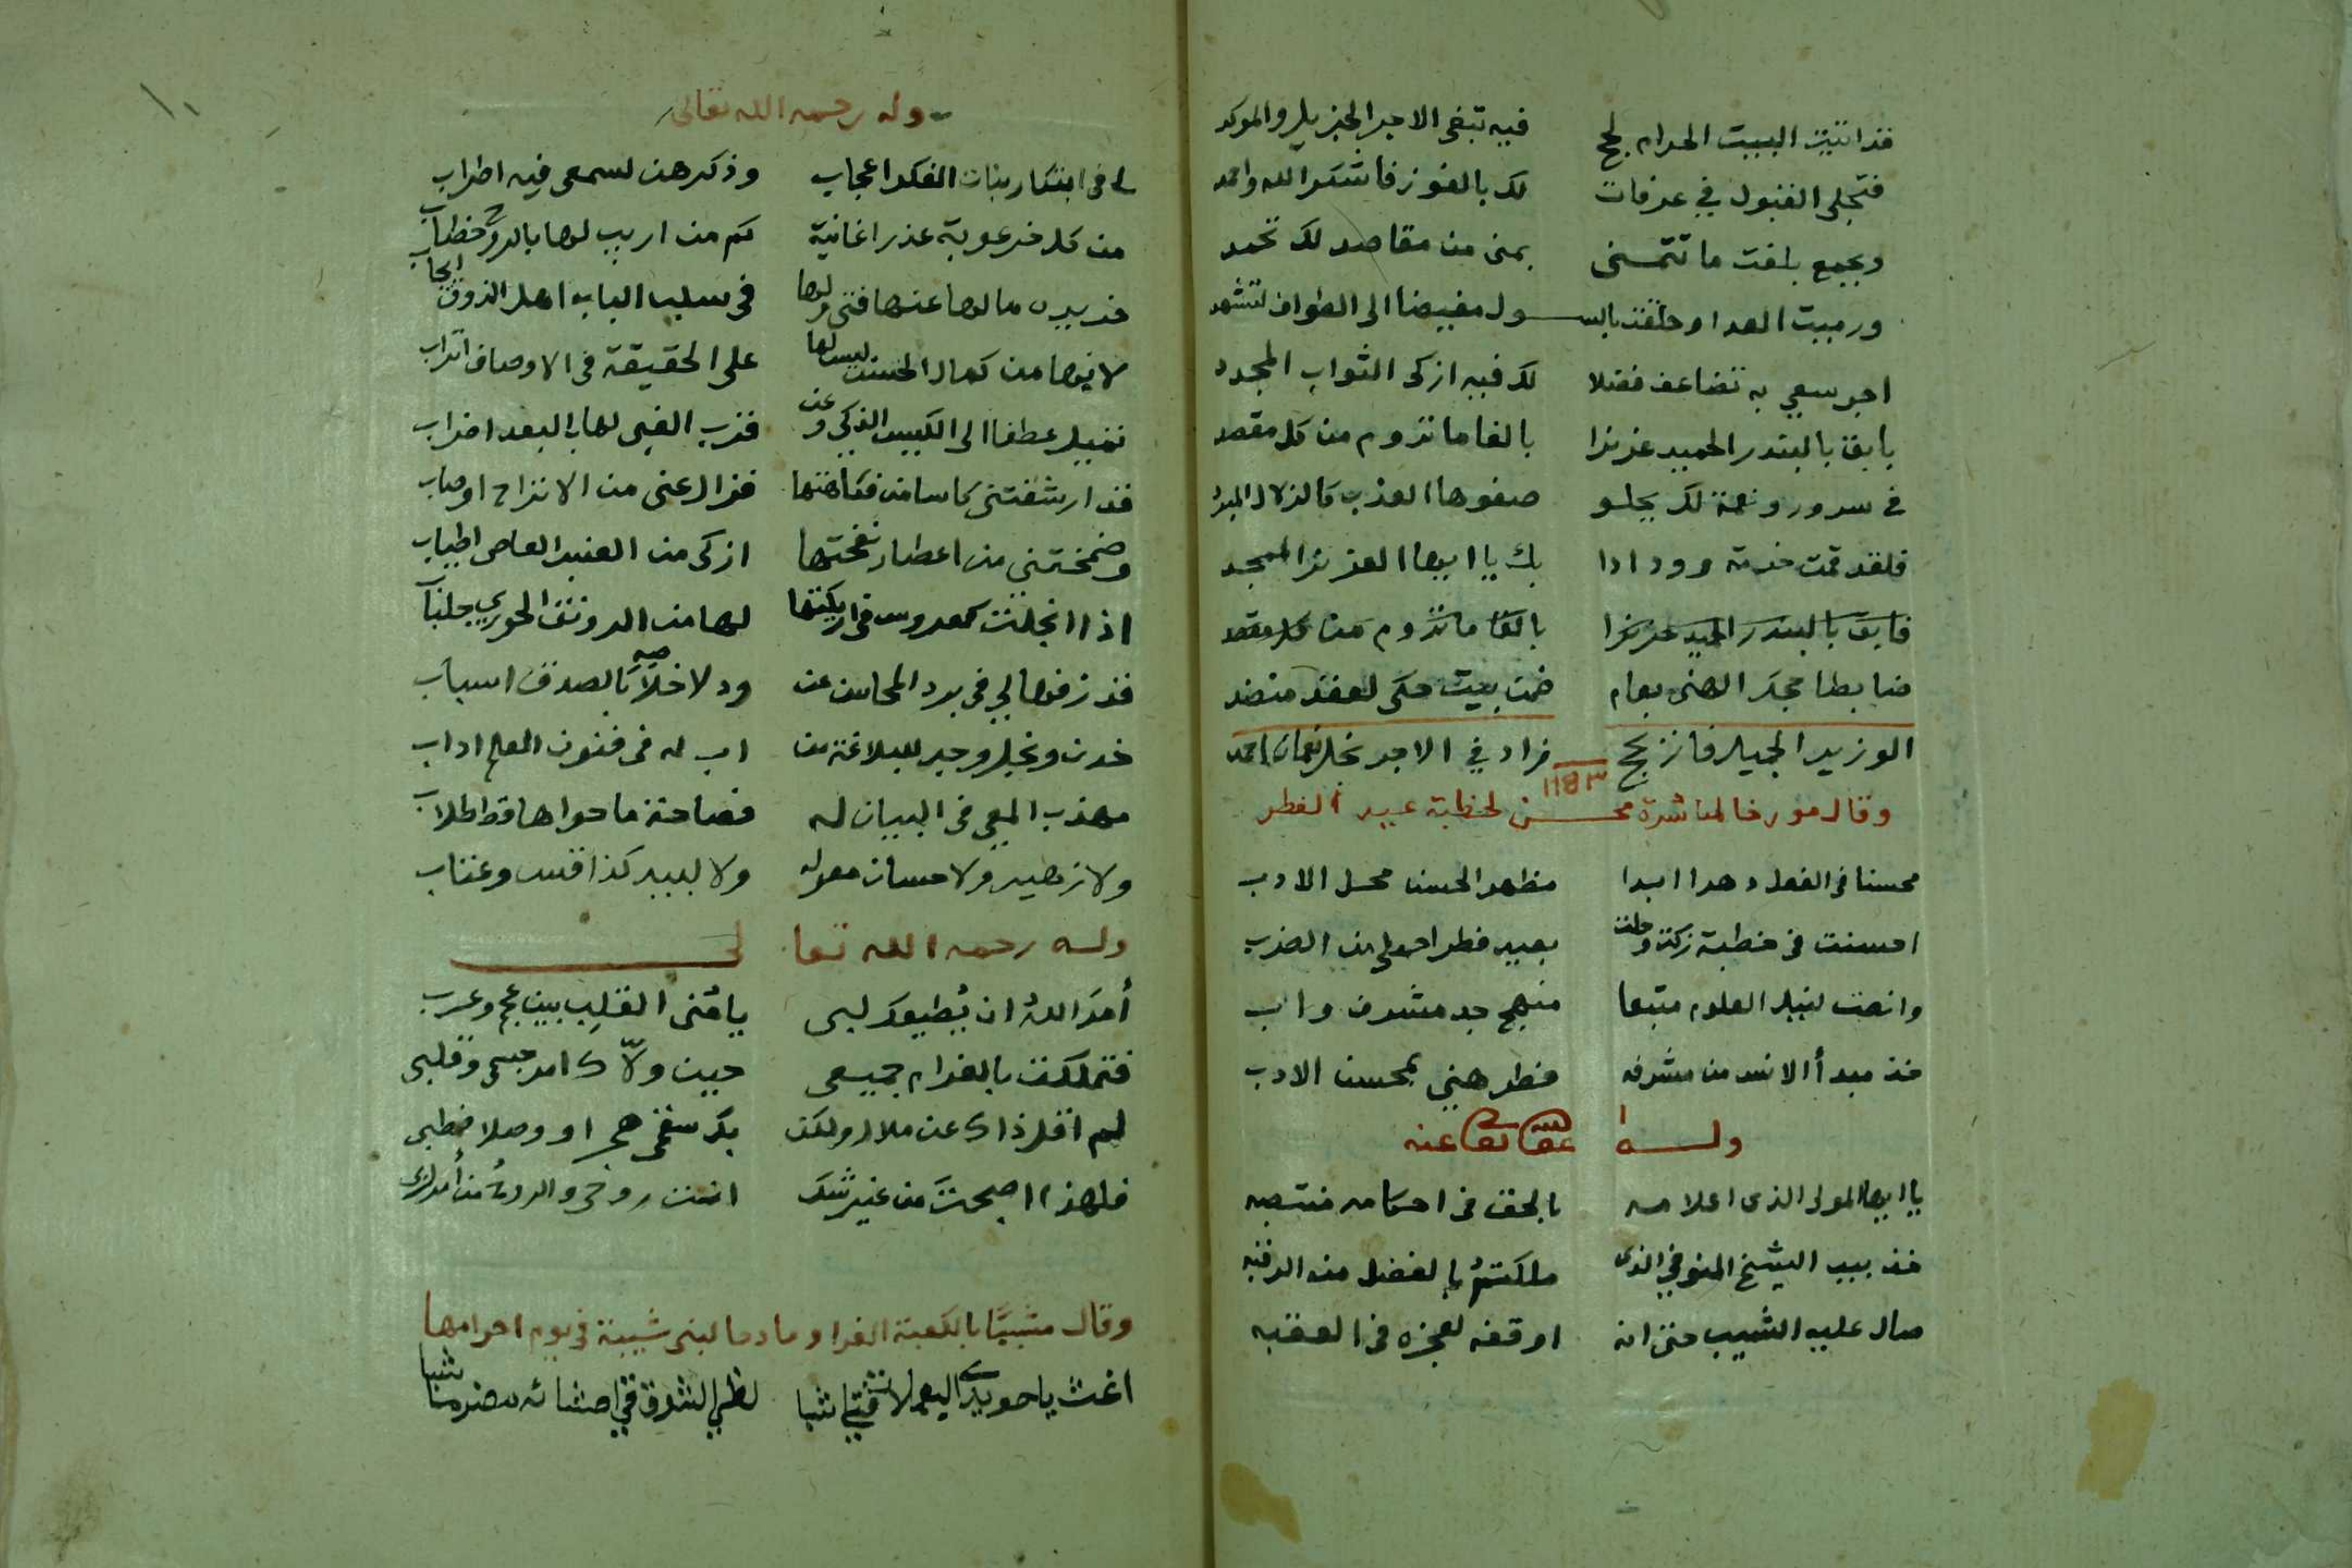 قد اتيت البيت الحرام لحج فيه تبغى الاجر الجزيل والموكد
فتجلى القبول في عرفات لك بالفوز فاشكر الله واحمد
وبجمع بلغت ما تتمنى بمنى من مقاصد لك تحمد
ورميت العدا وحلقت بالسول مفيضا الى الطواف لتشهد
اجر سعي به تضاعف فضلا لك فيه ازكى الثواب المجدد
بالبندر الحميد عزيزا بالغا ما تروم من كل مقصد
في سرور ونعمة لك يحلو صفوها العذب كالزلال المبرد
فلقد قمت خدمة وودادا بك يا ايها العزيز الممجد
فابق بالبندر الحميد عزيزا بالغا ما تروم من كل مقصد
ضابطا حجك الهني بعام ضمن بيت حكى لعقد منضد
الوزير الجميل فائز بحج زاد في الاجر نخل نعمان احمد
١١٨٣
وقال مورخا لمباشرة محسن لخطبة عيد الفطر
محسنا في الفعل دهرا ابدا مظهر الحسن محل الادب
احسنت في خطبة زكت وحلت بعيد فطر احلى من الضرب
وانصت لنيل العلوم متبعا منهج جد مشرف واب
خذ مبدأ الانس من مشرفه فطر هني بمحسن الادب
وله عفا الله تعالى عنه
يا ايها المولى الذي اعلامه بالحق في احكامه منتصبه
خذ بيد الشيخ المنوفي الذي ملكته بالفضل منه الرقبه
صال عليه الشيب حتى انه اوقفه لعجزه في العقبه
وله رحمه الله تعالى
لي في ابتكار بنات الفكر اعجاب وذكرهن لسمعي فيه اطراب
من كل خرعوبة عذرا غانية كم من اريب لها بالروح خطاب
ما لها عنها فتى ولها في سلب الباب اهل الذوق ايجاب
لانها من كمال الحسن ليس لها على الحقيقة في الاوصاف اتراب
تميل عطفا الى الكيس الذكي وعن قرب الغبي لها بالبعد اضراب
قد ارشفتني كاسا من فكاهتها فزال عني من الانزاح اوصاب
وضمختني من اعطار نفحتها ازكى من العنبر العاصي اطياب
اذا انجلت كعروس في اريكتها لها من الرونق الحوري جلباب
قد زفها لي في برد المحاسن عن ود لاخلاصه بالصدق اسباب
خدن ونجل وحيد للبلاغة من اب له في فنون العلم اداب
مهذب المعي في البيان له فصاحة ما حواها قط اطلاب
ولا زهير ولا حسان معوله ولا لبيد كذا قس وعتاب
وله رحمه الله تعالى
أمر الله ان يطيعك لبى يا مُنى القلب بين عجم وعرب
فتملكت بالغرام جميعي حين ولاك امر جسمي وقلبي
لم اقل ذاك عن ملال ولكن بك سقمي هجرا ووصلا فطبي
فلهذا اصبحت من غير شك انت روحي والروح من أمر ربي
وقال مشببًا بالكعبة الغرا ومادحا لبني شيبة في يوم احرامها
اغث يا حويدي اليعملات فتى شبا لظى الشوق في احشائه مضرما شبا